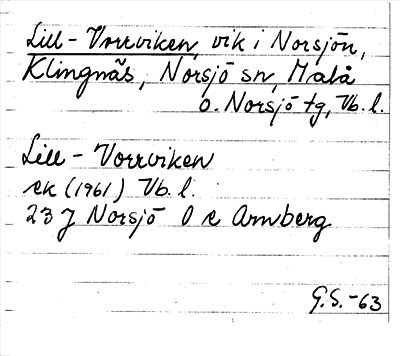 Lill-Vorrviken, vik i Norsjön,
Klingnäs, Norsjö sn, Malå
o. Norsjö tg, Vb. l.
Lill-Vorrviken
ek (1961) Vb. l.
23 J Norsjö 0 e Armberg
G.S.-63